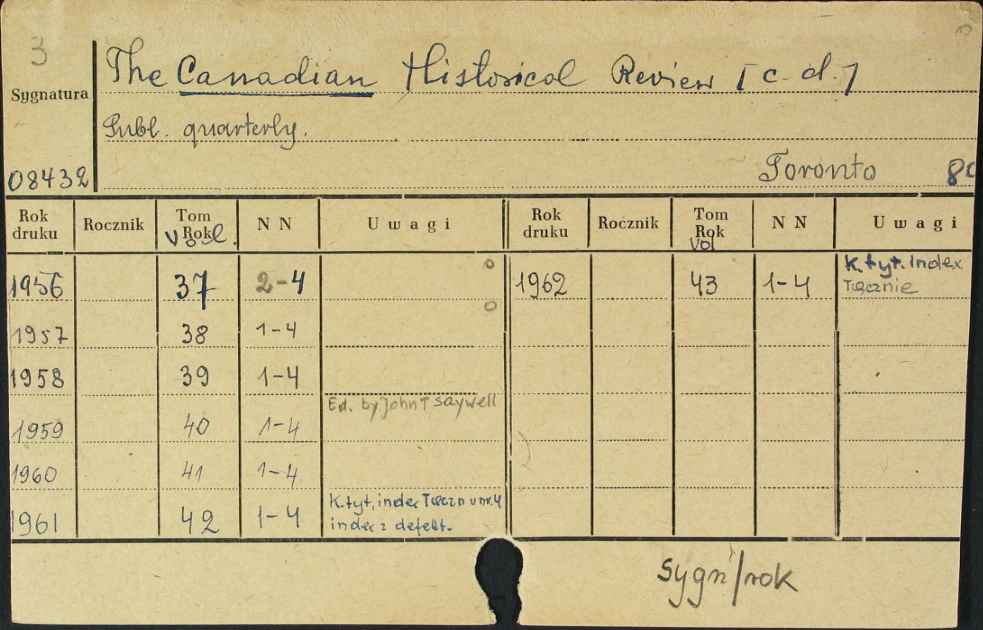 3
Sygnatura
The Canadian Historical Review [c. d.]
Publ. quarterly.
08432 Toronto 8
Rok druku Rocznik Tom Rok Vol. N N Uwagi Rok druku Rocznik Tom Rok Vol N N Uwagi
1956 37 2-4 1962 43 1-4 K. tyt. index łącznie
1957 38 1-4
1958 39 1-4
1959 40 1-4 Ed. by John T Saywell
1960 41 1-4
1961 42 1-4 K. tyt, index łączn w nr. 4
index z defekt.
sygn/rok